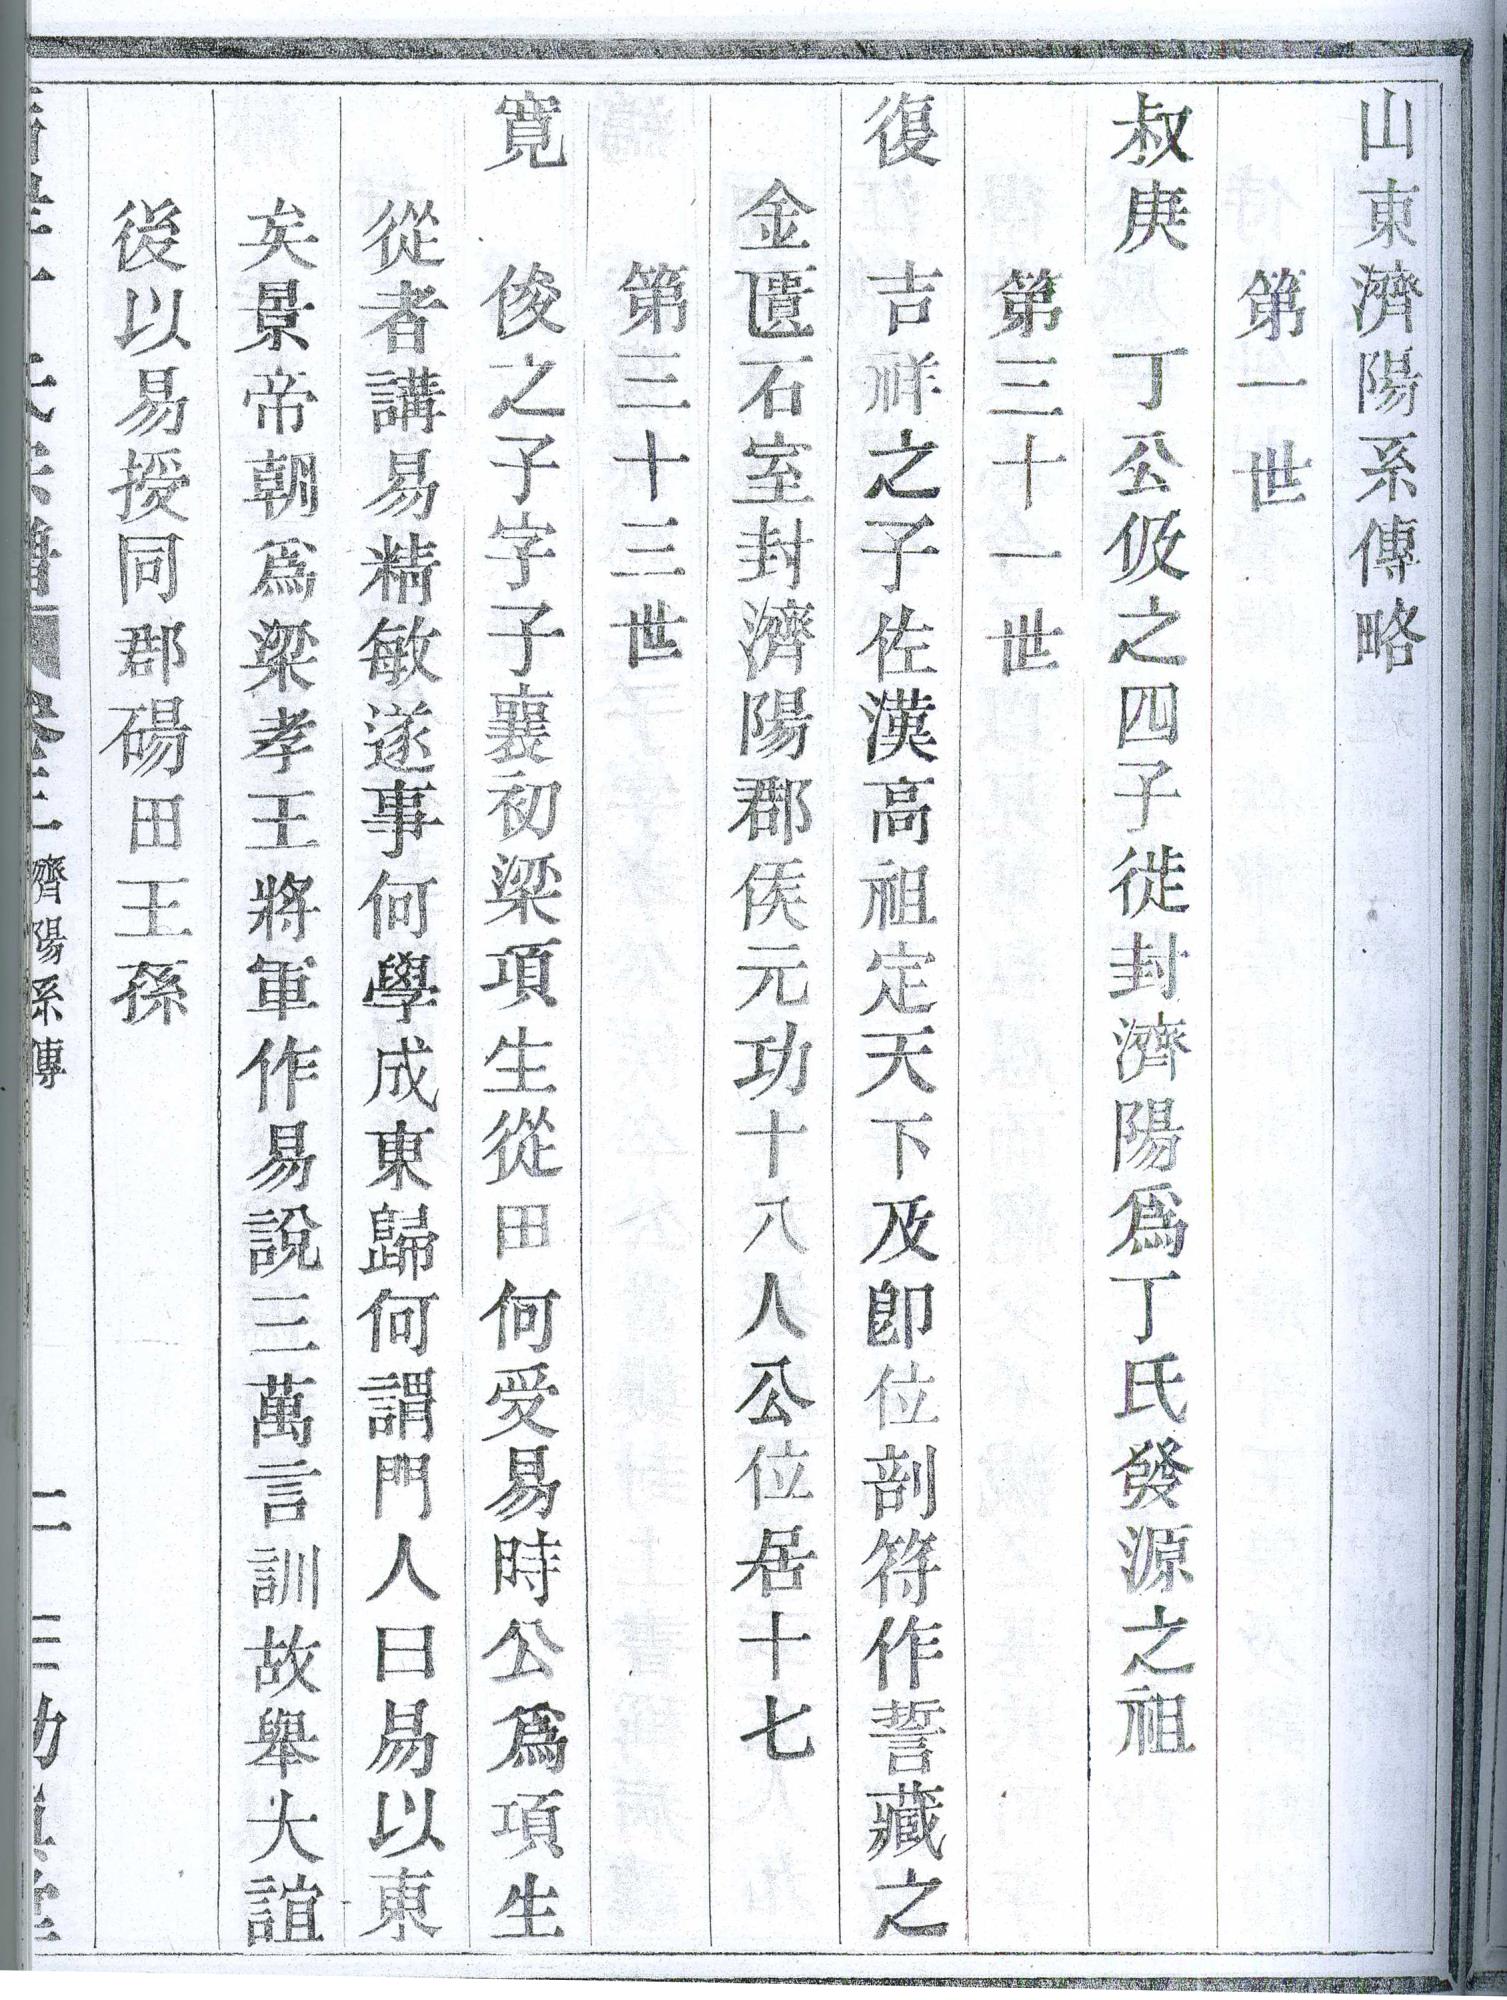 山東濟陽系傳略
第一世
叔庚　丁公伋之四子徙封濟陽爲丁氏發源之祖
第三十一世
復　吉祥之子佐漢高祖定天下及卽位剖符作誓藏之
金匱石室封濟陽郡侯元功十八人公位居十七
第三十三世
寬　俊之子字子襄初梁項生從田何受易時公爲項生
從者講易精敏遂事何學成東歸何謂門人曰易以東
矣景帝朝爲梁孝王將軍作易說三萬言訓故舉大誼
後以易授同郡碭田王孫
濟陽系傳